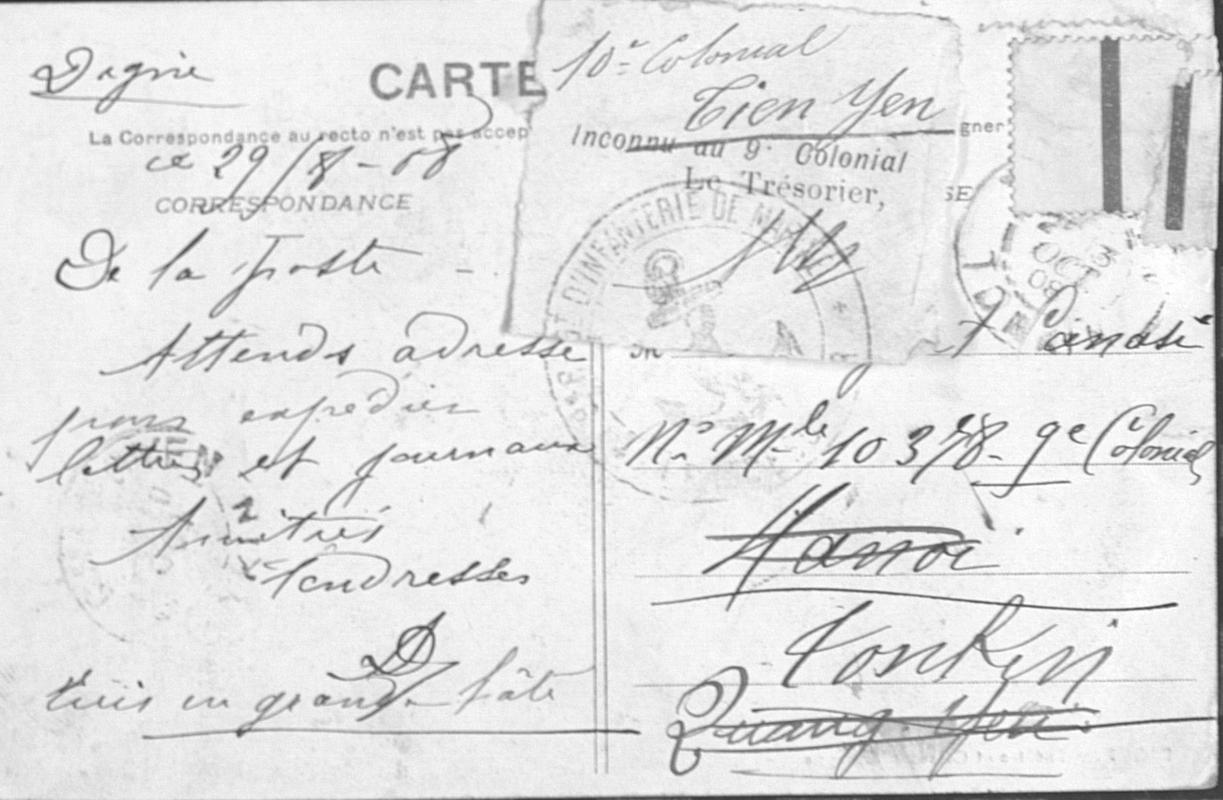 Digne
CARTE
La Correspondance au recto n'est pas accep
ce 29/8-08
CORRESPONDANCE
De la poste -
Attends adresse
pour expedier
lettres et journaux
Amitiés
tendresses
D
suis en grande hâte
10e Colonial
Tien Yen
Inconnu au 9e Colonial
Le Trésorier,
D'INFANTERIE DE MARINE
gner
SE
OCT
08
No Mle 10378- 9e Colonial
Hanoi
Tonkin
Quang Yen